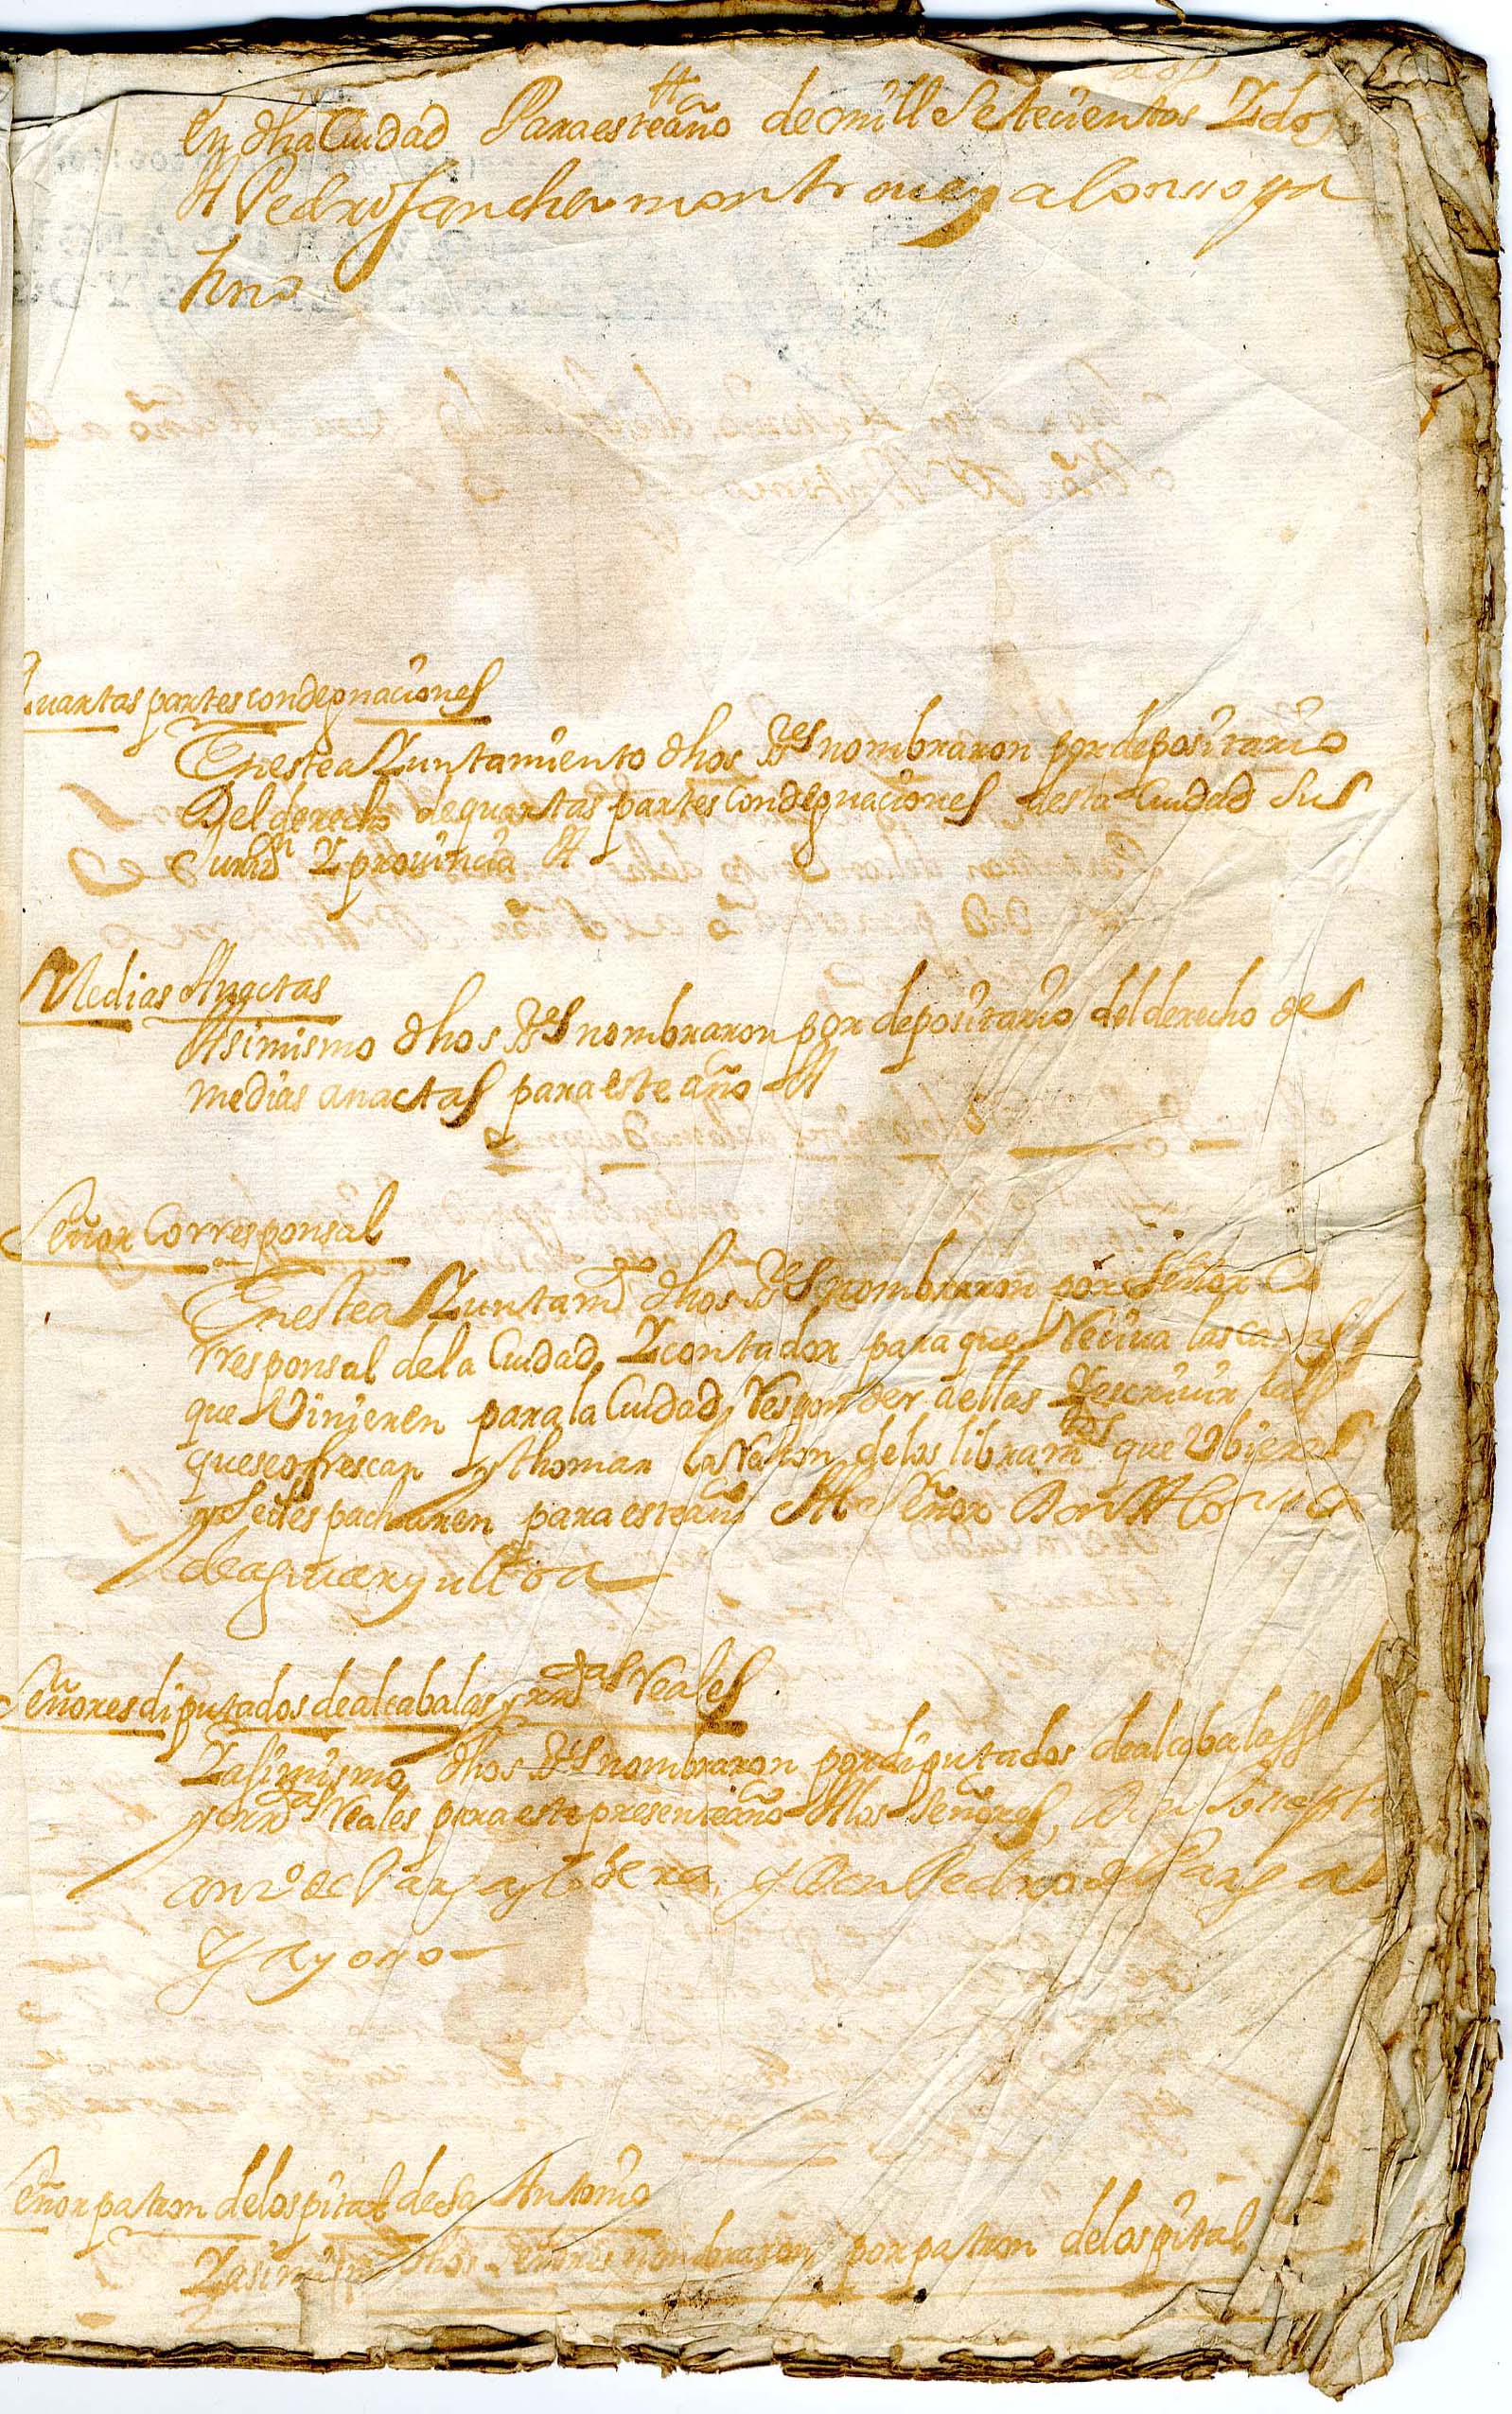 en dha Ciudad Para este año de mill Setecientos Y dos
A Pedro Sanchez y alonsso
Quartas partes condepnaciones
En este aYuntamiento dhos Sres nombraron por depositario
Del derecho de quartas partes Condepnaciones desta Ciudad Su
Y provincia A
Medias Anactas
Asimismo dhos Sres nombraron por depositario del derecho de
medias anactas para este año A
Señor Corresponsal
En este aYuntamto dhos Sres nombraron por Señor Co
rresponsal dela Ciudad, Y contador para que Reciva las cartas
que Vinieren para la Ciudad, Responder a ellas Y escrivir las
que se ofrescan y thomar la Raçon de los libramtos que Vbiere
y se despacharen para este año Al Señor Don
de aguiar y ulloa
Señores diputados de alcabalas y rrdas Reales
Y asimismo, dhos Sres nombraron por diputados de alcabalas
y rrdas Reales para este presente año A los Señores, Don
anto de y Don Pedro de
Señor patron del ospital de Sa Antonio
Y asimismo dhos Señores nombraron por patron del ospital